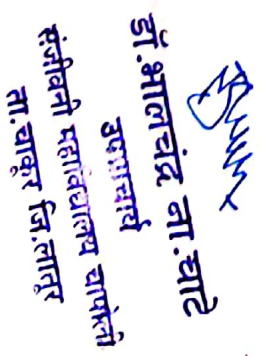 डॉ.भालचंद्र ना.घाटे
उपप्राचार्य
संजीवनी महाविद्यालय चापोली
ता.चाकूर जि.लातूर